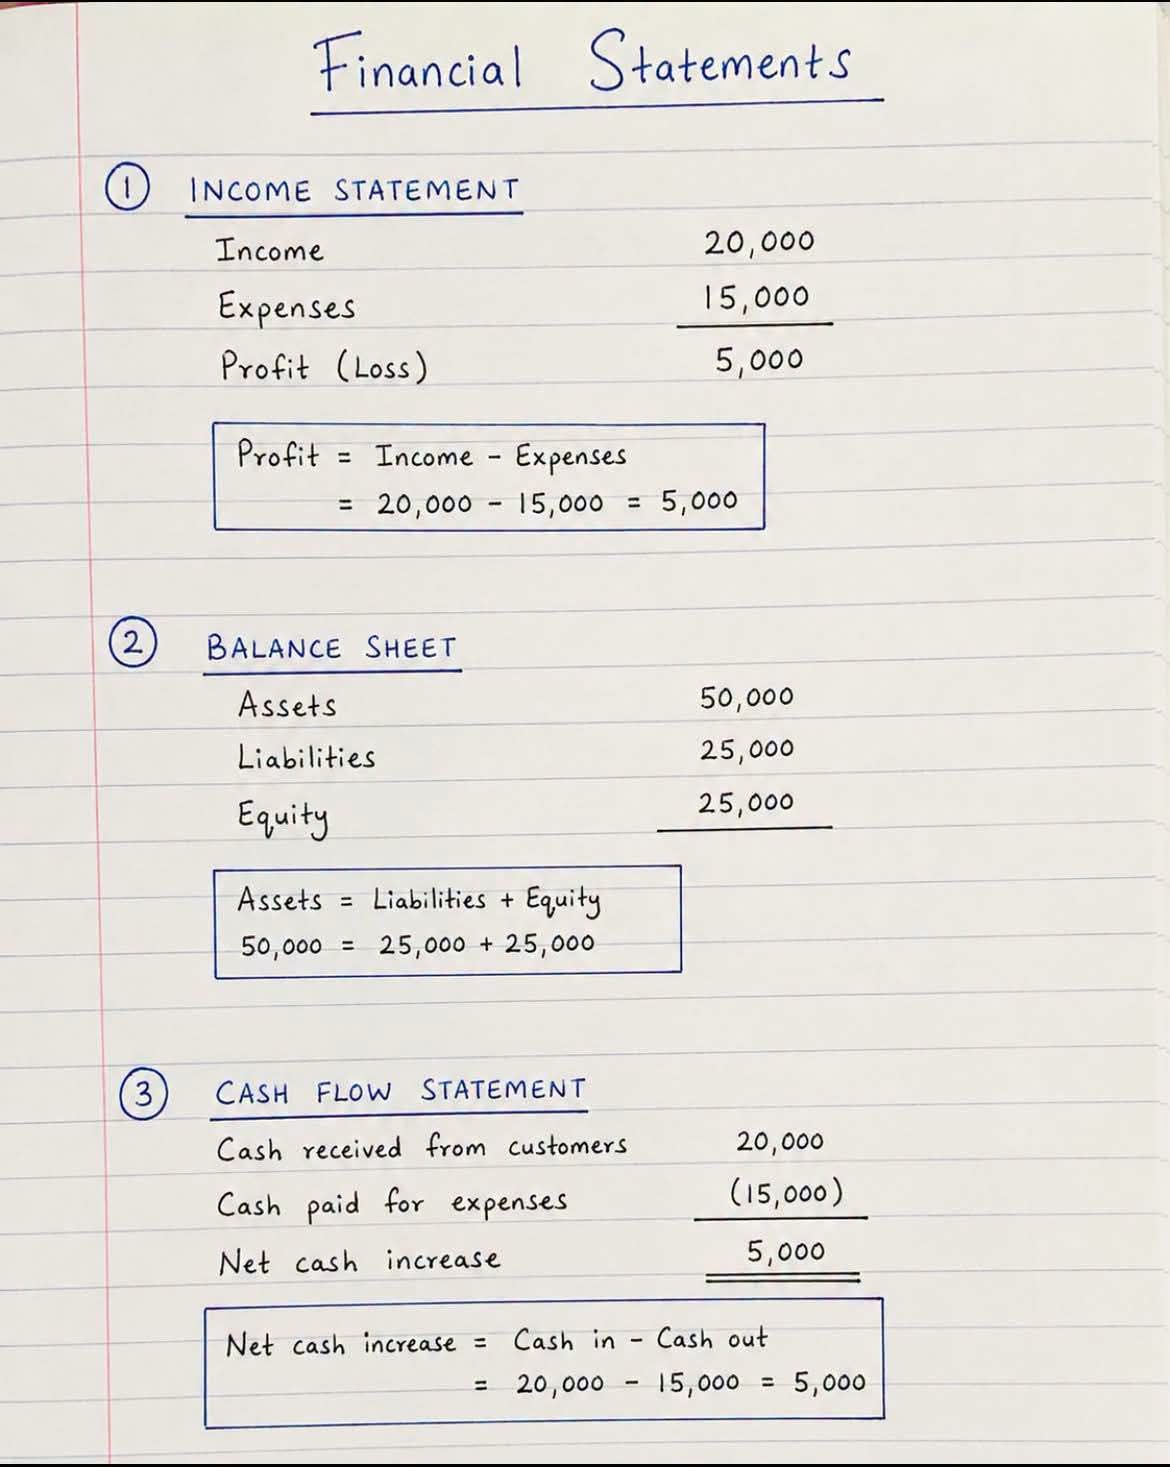 Financial Statements
1 INCOME STATEMENT
Income 20,000
Expenses 15,000
Profit (Loss) 5,000
Profit = Income - Expenses
= 20,000 - 15,000 = 5,000
2 BALANCE SHEET
Assets 50,000
Liabilities 25,000
Equity 25,000
Assets = Liabilities + Equity
50,000 = 25,000 + 25,000
3 CASH FLOW STATEMENT
Cash received from customers 20,000
Cash paid for expenses (15,000)
Net cash increase 5,000
Net cash increase = Cash in - Cash out
= 20,000 - 15,000 = 5,000